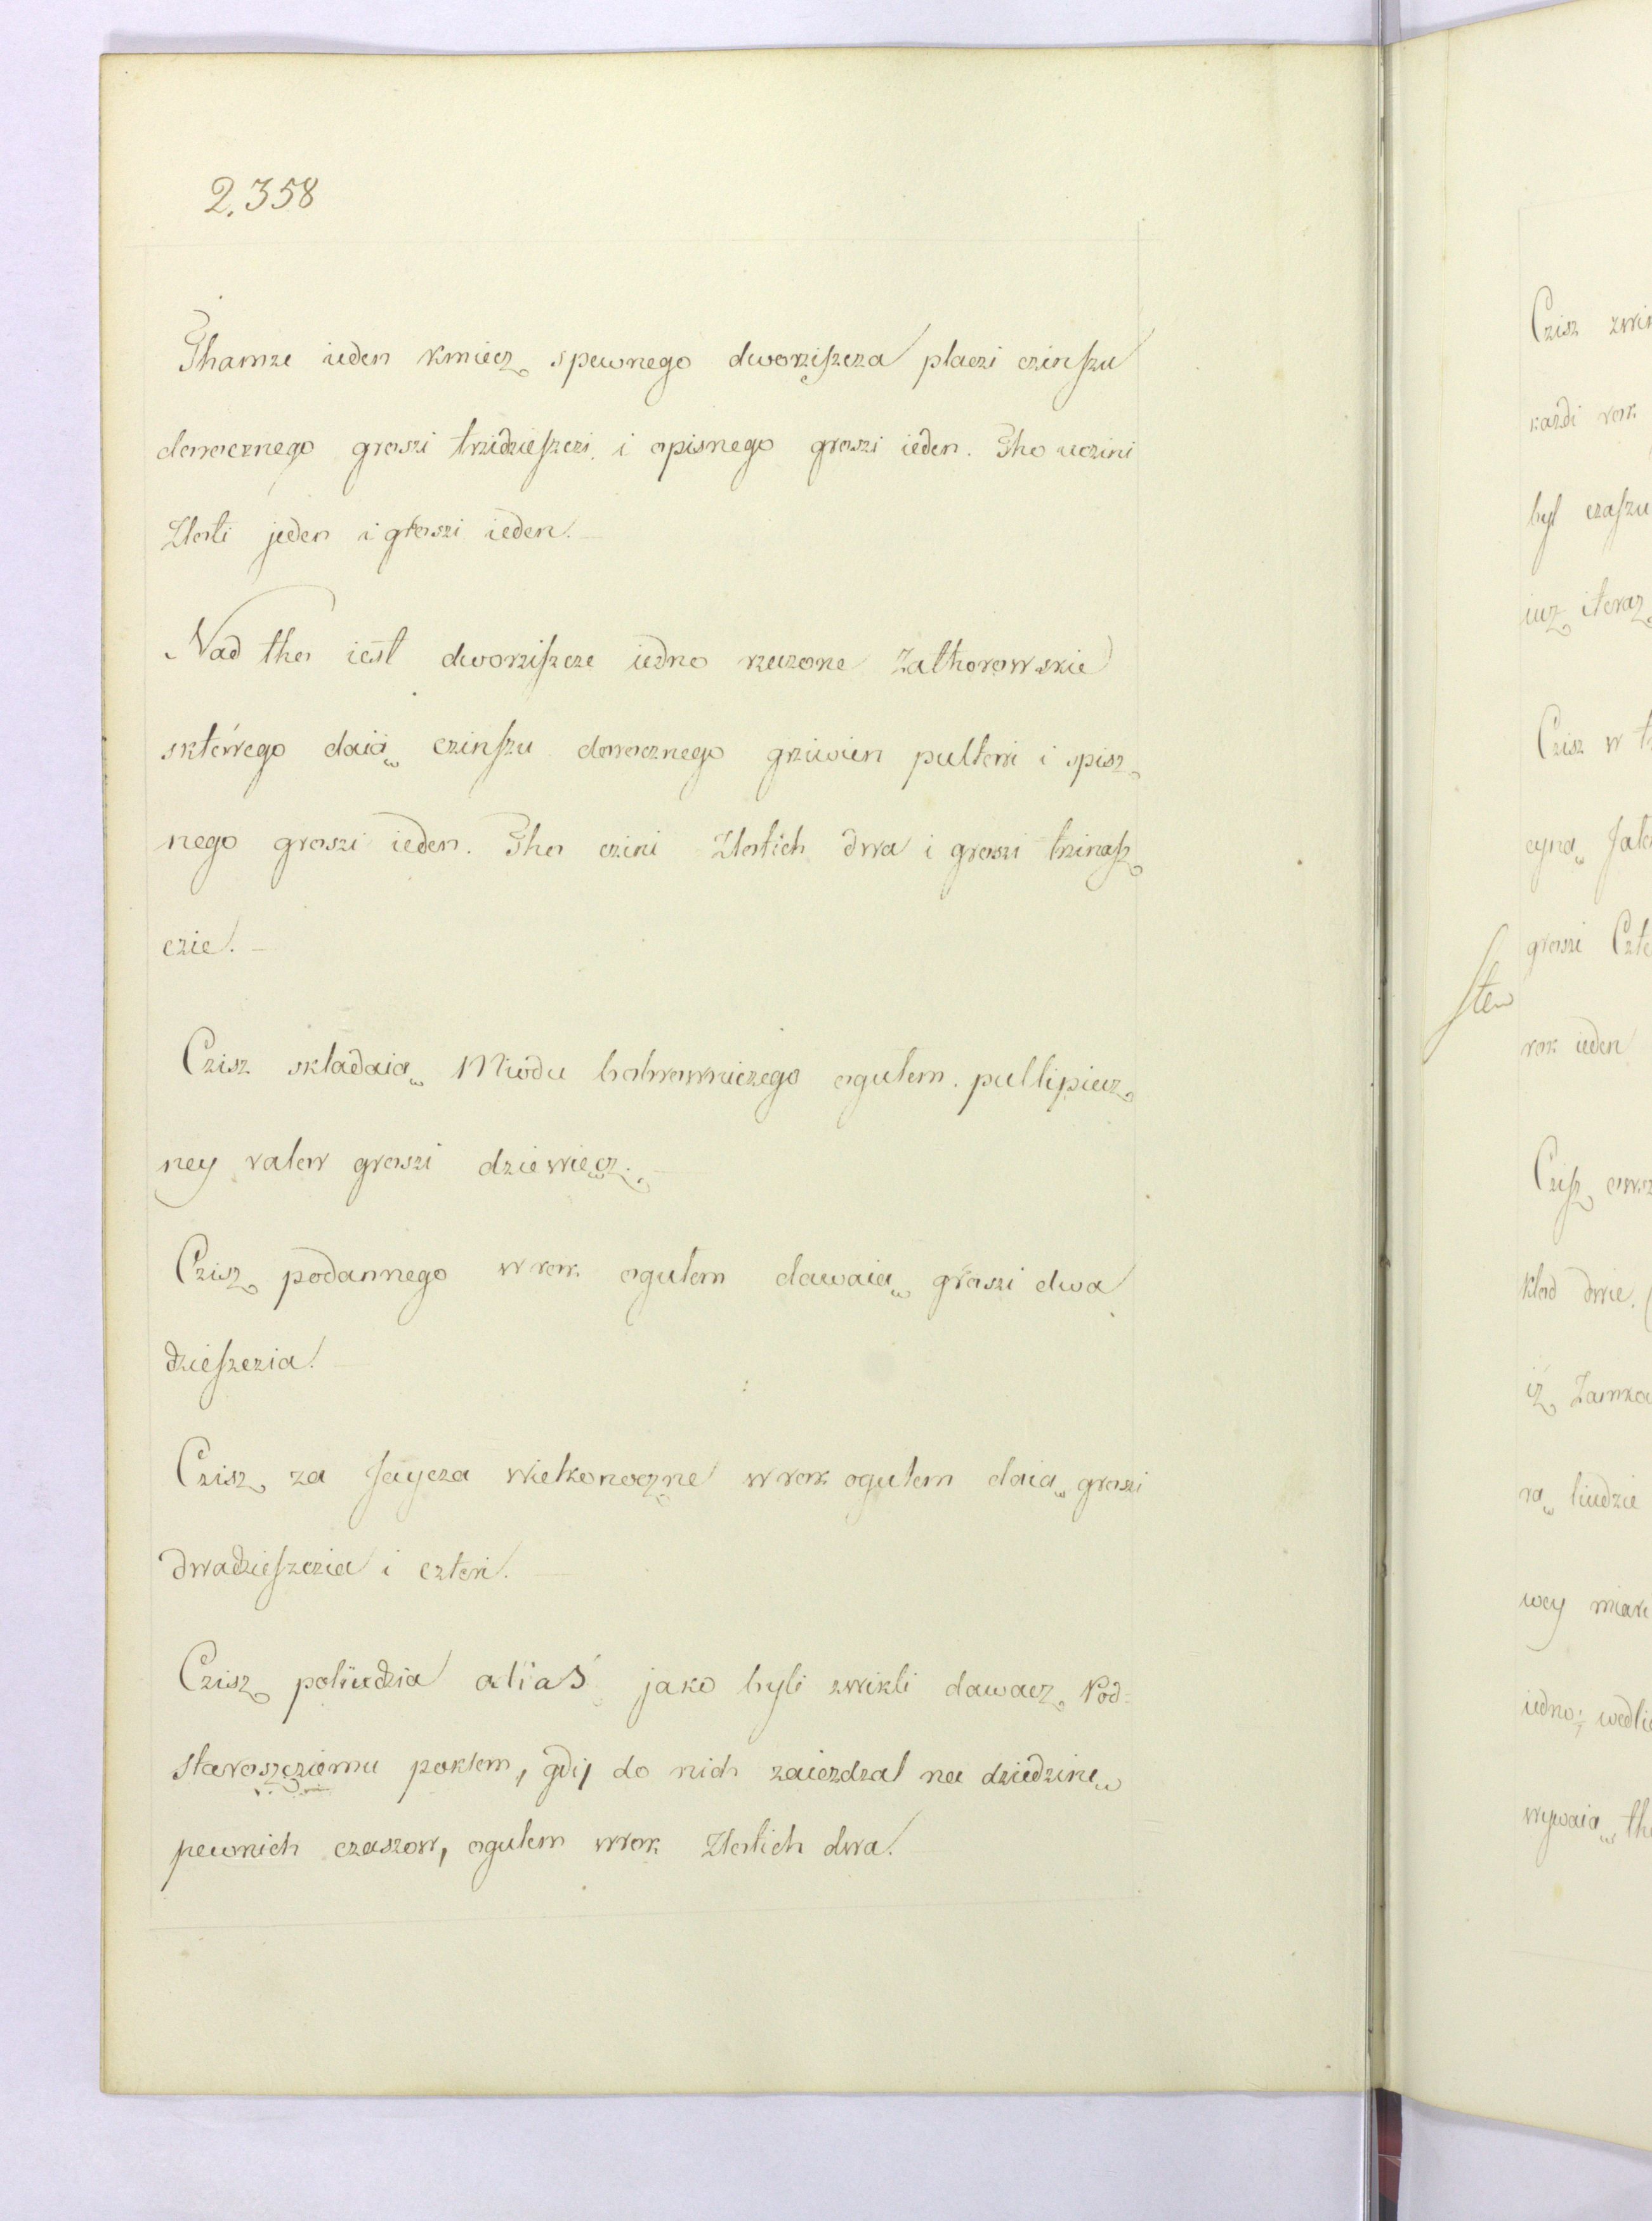 2.358
Thamze ieden kmiecz spewnego dworziszcza placzi czinszu
dorocznego groszi trzidzieszczi i opisnego groszi ieden. Tho uczini
Zloti jeden i groszi ieden.
Nad tho iest dworziszcze iedno rzeczone Zathorowskie
sktorego daią czinszu dorocznego grziwien pultori i spisz
nego groszi ieden. Tho czini Zlotich dwa i groszi trzinasz
czie.
Czisz skladaią Miodu bobrowniczego ogulem pullipiecz
ney valor groszi dziewięcz.
Czisz podannego wrok ogulem dawaią groszi dwa
dzieszczia.
Czisz za Jaycza wielkonoczne wrok ogulem daią groszi
dwadzieszczia i czteri.
Czisz poliudzia alias jako byli zwikli dawacz Pod=
staroszcziemu poklem, gdi do nich zaiezdzal na dziedzinę
pewnich czaszow, ogulem wrok Zlotich dwa.
Czisz
każdi rok
byl czaszu
iuz iteraz
Czisz w
groszi
sten
rok ieden
Czisz
klod dwie.
iz
liudzie
wey
iedno;